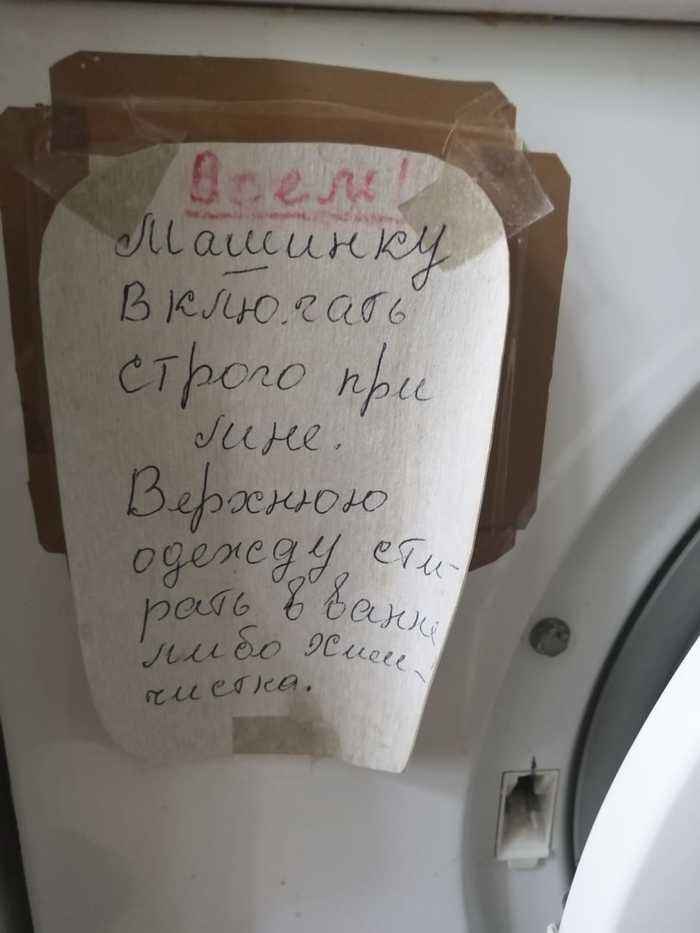 Всем!
Машинку
включать
строго при
мне.
Верхнюю
одежду сти-
рать в ванне
либо хим-
чистка.